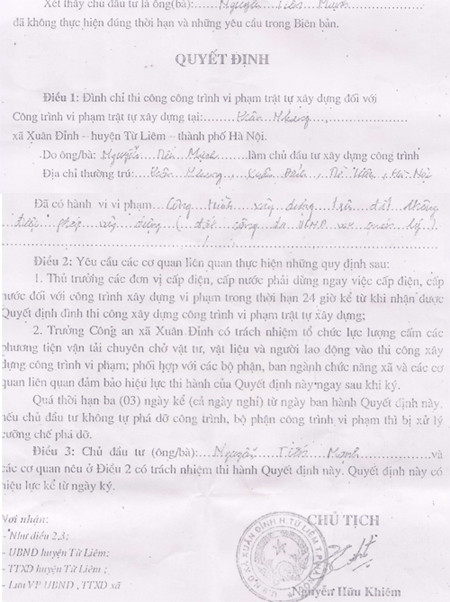 Xét thấy chủ đầu tư là ông(bà): Nguyễn Tiến Mạnh
đã không thực hiện đúng thời hạn và những yêu cầu trong Biên bản.
QUYẾT ĐỊNH
Điều 1: Đình chỉ thi công công trình vi phạm trật tự xây dựng đối với
Công trình vi phạm trật tự xây dựng tại:
xã Xuân Đỉnh – huyện Từ Liêm – thành phố Hà Nội.
Do ông/bà: Nguyễn Tiến Mạnh làm chủ đầu tư xây dựng công trình
Địa chỉ thường trú: Xuân Đỉnh, Từ Liêm, Hà Nội
Đã có hành vi vi phạm Công trình xây dựng trên đất không
được phép xây dựng ( đất công do UBND xã quản lý )
Điều 2: Yêu cầu các cơ quan liên quan thực hiện những quy định sau:
1. Thủ trưởng các đơn vị cấp điện, cấp nước phải dừng ngay việc cấp điện, cấp
nước đối với công trình xây dựng vi phạm trong thời hạn 24 giờ kể từ khi nhận được
Quyết định đình thi công xây dựng công trình vi phạm trật tự xây dựng;
2. Trưởng Công an xã Xuân Đỉnh có trách nhiệm tổ chức lực lượng cấm các
phương tiện vận tải chuyên chở vật tư, vật liệu và người lao động vào thi công xây
dựng công trình vi phạm; phối hợp với các bộ phận, ban ngành chức năng xã và các cơ
quan liên quan đảm bảo hiệu lực thi hành của Quyết định này ngay sau khi ký.
Quá thời hạn ba (03) ngày kể (cả ngày nghỉ) từ ngày ban hành Quyết định này,
nếu chủ đầu tư không tự phá dỡ công trình, bộ phận công trình vi phạm thì bị xử lý
cưỡng chế phá dỡ.
Điều 3: Chủ đầu tư (ông/bà): Nguyễn Tiến Mạnh và
các cơ quan nêu ở Điều 2 có trách nhiệm thi hành Quyết định này. Quyết định này có
hiệu lực kể từ ngày ký.
Nơi nhận:
- Như điều 2,3;
- UBND huyện Từ Liêm;
- TTXD huyện Từ Liêm ;
- Lưu VP UBND , TTXD xã
CHỦ TỊCH
XÃ XUÂN ĐỈNH H.TỪ LIÊM T.P
Nguyễn Hữu Khiêm